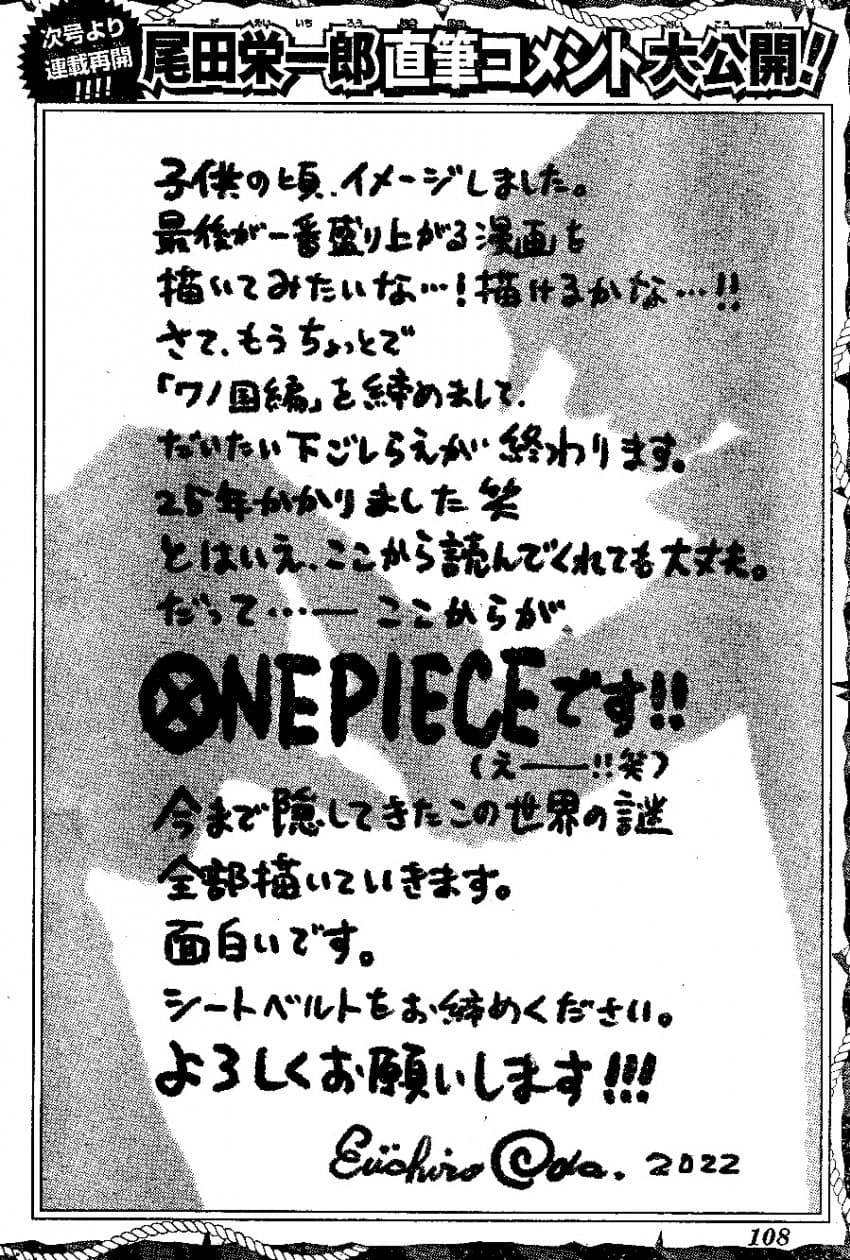 次号より
連載再開
!!!!
尾田栄一郎直筆コメント大公開!
子供の頃、イメージしました。
「最後が一番盛り上がる漫画」を
描いてみたいな…!描けるかな…!!
さて、もうちょっとで
「ワノ国編」を締めまして、
だいたい下ごしらえが終わります。
25年かかりました笑
とはいえ、ここから読んでくれても大丈夫。
だって…ーここからが、
ONE PIECEです!!
(えーー!!笑)
今まで隠してきたこの世界の謎
全部描いていきます。
面白いです。
シートベルトをお締めください。
よろしくお願いします!!!
Eiichiro Oda. 2022
108